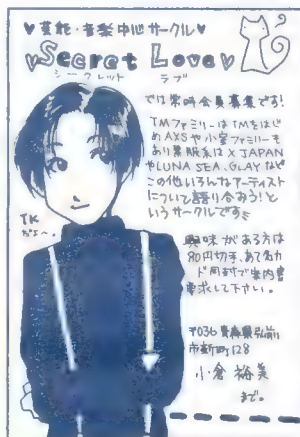 ♥芸能・音楽中心サークル♥
♥Secret Love♥
シークレット ラブ
では常時会員募集です!
TMファミリーはTMをはじ
めAXSや小室ファミリーも
あり黒服系はX JAPAN
やLUNA SEA、GLAYなど
この他いろんなアーティスト
について語り合おう!と
いうサークルです
TK
だよ〜。
興味がある方は
80円切手、あて名カ
ード同封で案内書
要求して下さい。
〒036 青森県弘前
市新町128
小倉 裕美
まで。